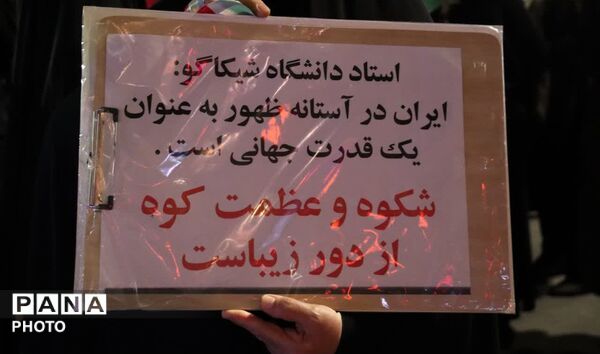 استاد دانشگاه شیکاگو:
ایران در آستانه ظهور به عنوان
یک قدرت جهانی است.
شکوه و عظمت کوه
از دور زیباست
PANA
PHOTO